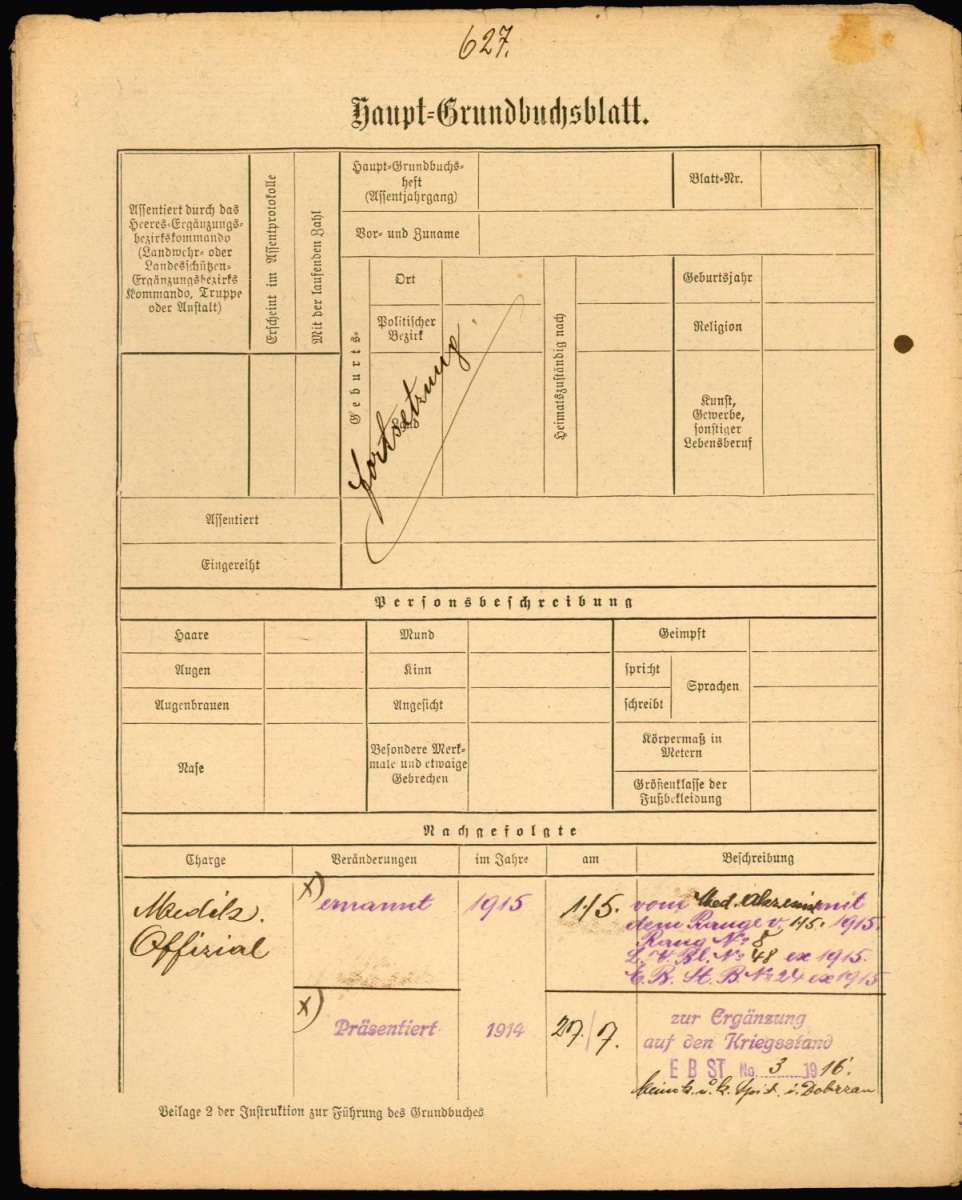 627.
Haupt-Grundbuchsblatt.
Assentiert durch das
Heeres-Ergänzungs-
bezirkskommando
(Landwehr- oder
Landesschützen-
Ergänzungsbezirks
Kommando, Truppe
oder Anstalt)
Erscheint im Assentprotokolle
Mit der laufenden Zahl
Haupt-Grundbuchs-
heft
(Assentjahrgang)
Blatt-Nr.
Vor- und Zuname
Geburts-
Ort
Politischer
Bezirk
Land
Heimatszuständig nach
Geburtsjahr
Religion
Kunst,
Gewerbe,
sonstiger
Lebensberuf
fortsetzung
Assentiert
Eingereiht
Personsbeschreibung
Haare
Mund
Geimpft
Augen
Kinn
spricht
schreibt
Sprachen
Augenbrauen
Angesicht
Nase
Besondere Merk-
male und etwaige
Gebrechen
Körpermaß in
Metern
Größenklasse der
Fußbekleidung
Nachgefolgte
Charge
Veränderungen
im Jahre
am
Beschreibung
Medik.
Offizial
x) ernannt
1915
1/5.
vom Med. Akzessist mit
dem Range v. 1/5. 1915.
Rang No 8
L. V. Bl. No 48 ex 1915.
E. B. St. B. No 24 ex 1915
x) Präsentiert
1914
27/7.
zur Ergänzung
auf den Kriegsstand
E B ST No. 3 1916.
k. u. k. Spit. i. Dobrzan
Beilage 2 der Instruktion zur Führung des Grundbuches